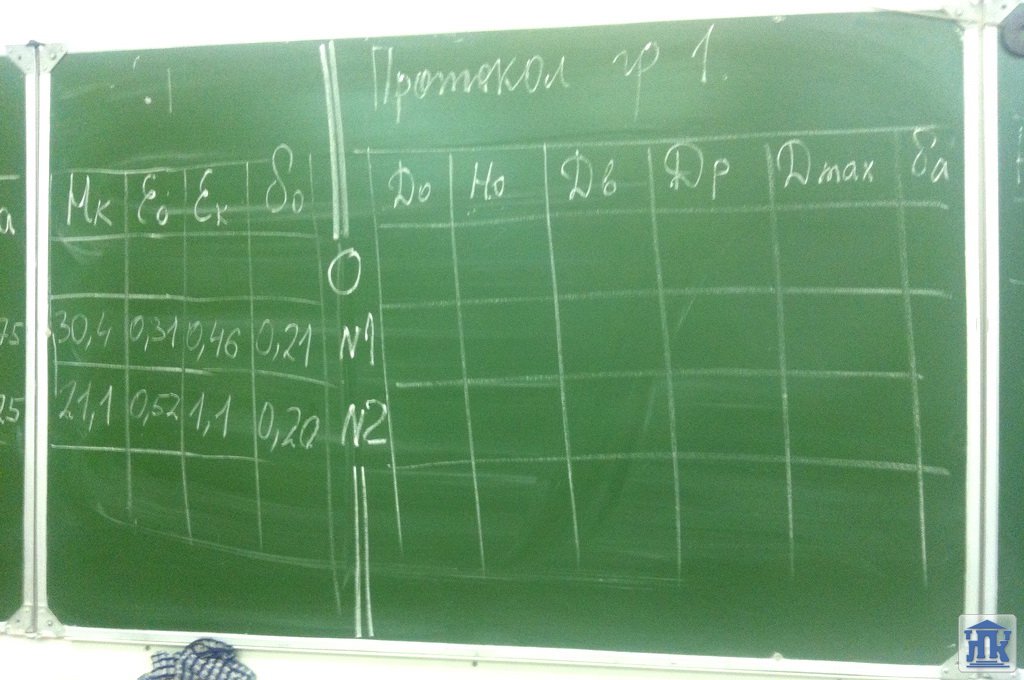 Протокол гр 1.
а Mк εо εк δо До Но Дв Др Дmax δа
О
75 30,4 0,31 0,46 0,21 N1
25 21,1 0,52 1,1 0,20 N2
НК